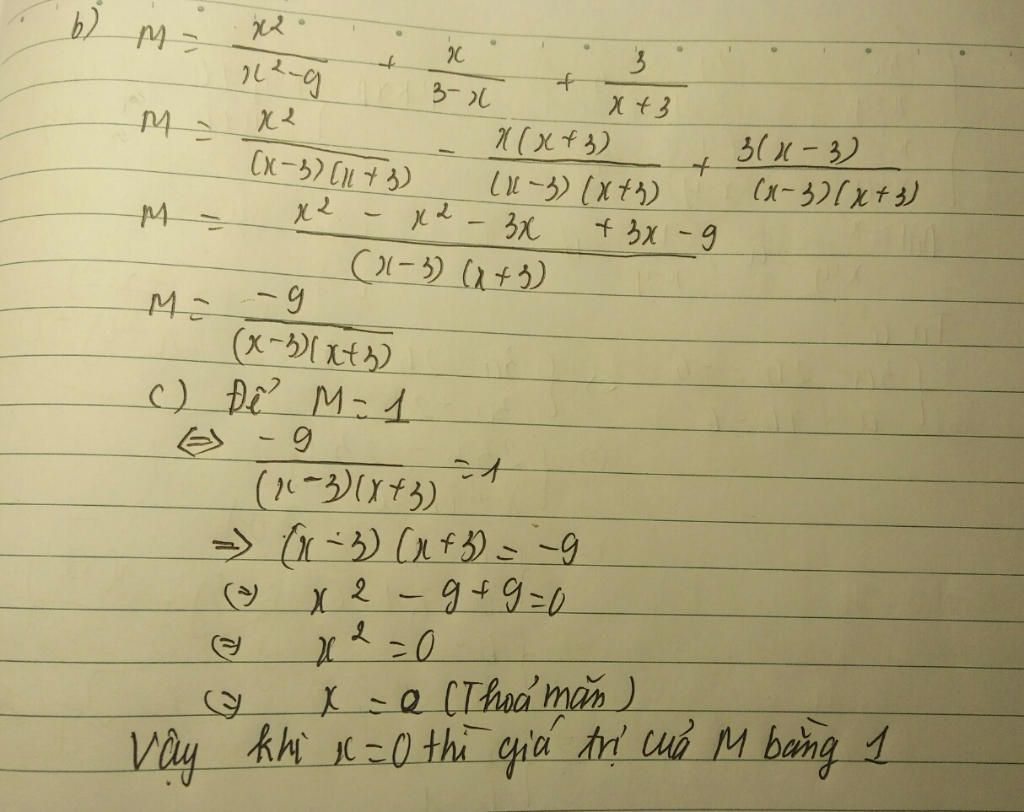 b) M = x²/(x²-9) + x/(3-x) + 3/(x+3)
M = x²/((x-3)(x+3)) - x(x+3)/((x-3)(x+3)) + 3(x-3)/((x-3)(x+3))
M = (x² - x² - 3x + 3x - 9)/((x-3)(x+3))
M = -9/((x-3)(x+3))
c) Để M = 1
⇔ -9/((x-3)(x+3)) = 1
⇒ (x-3)(x+3) = -9
⇔ x² - 9 + 9 = 0
⇔ x² = 0
⇔ x = 0 (Thoả mãn)
Vậy khi x=0 thì giá trị cuả M bằng 1